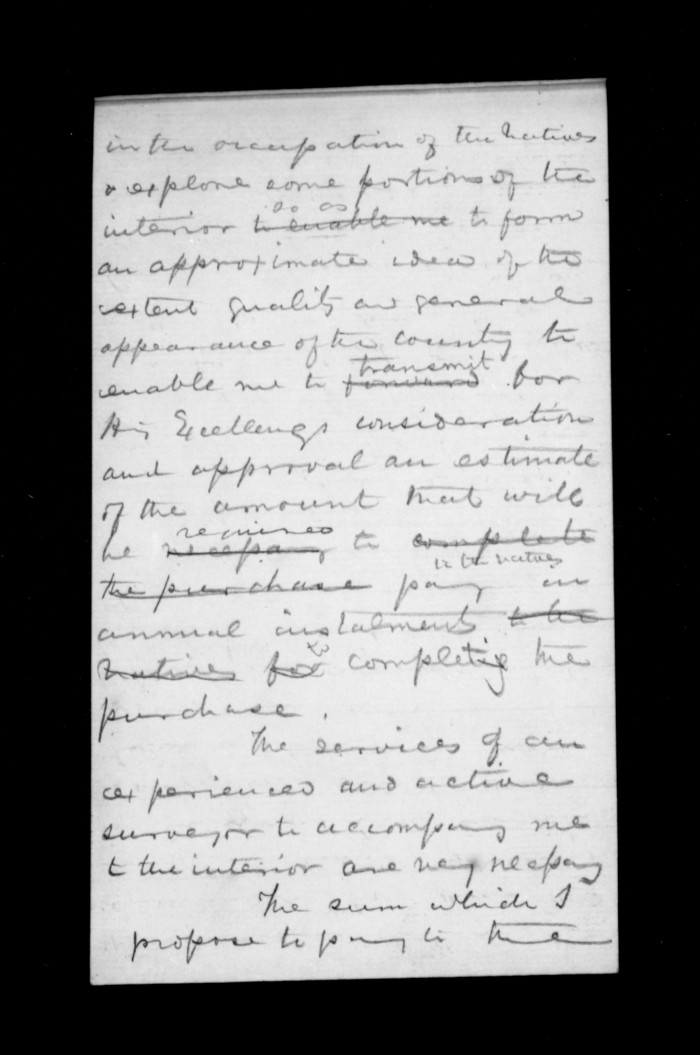 in the occupation of the Natives
& explore some portions of the
so as
interior to enable me to form
an approximate idea of the
extent quality and general
appearance of the country to
transmit
enable me to forward for
His Excellency's consideration
and approval an estimate
of the amount that will
required
be necessary to complete
to the natives
the purchase pay in
annual instalments to the
to
Natives for complete the
purchase.
The services of an
experienced and active
surveyor to accompany me
to the interior are very necessary
The sum which I
propose to pay to the